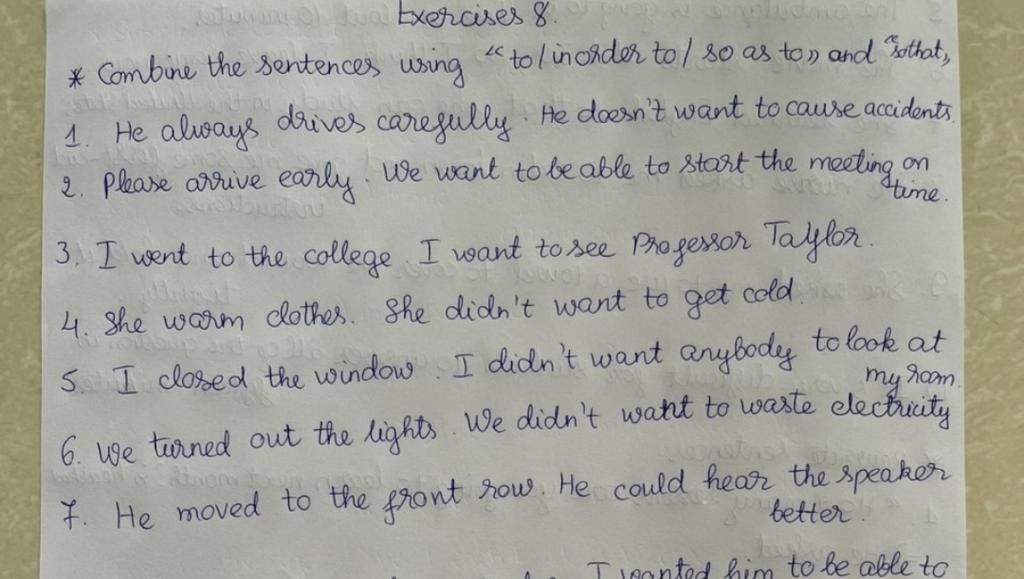 Exercises 8.
* Combine the sentences using "to/inorder to/ so as to" and "sothat,
1. He always drives carefully. He doesn't want to cause accidents.
2. Please arrive early. We want to be able to start the meeting on
time.
3. I went to the college. I want to see Professor Taylor.
4. She warm clothes. She didn't want to get cold.
5. I closed the window. I didn't want anybody to look at
my room.
6. We turned out the lights. We didn't want to waste electricity
7. He moved to the front row. He could hear the speaker
better.
I wanted him to be able to